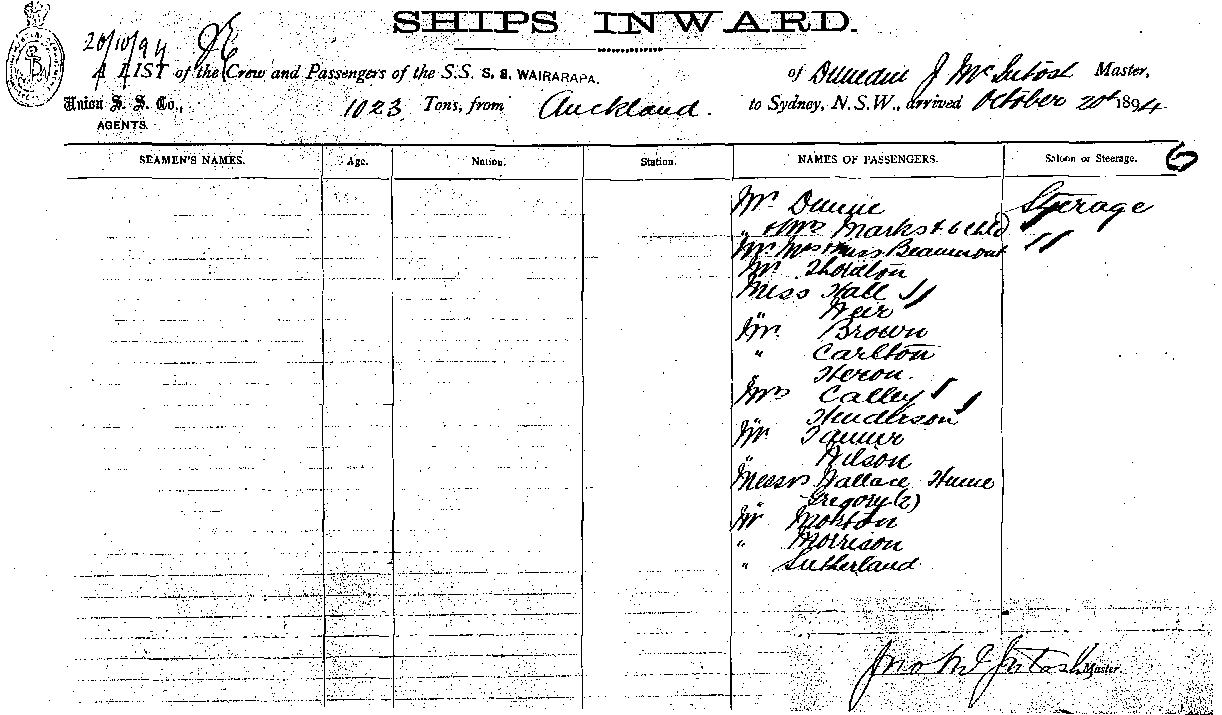 SHIPS INWARD.
20/10/94
A LIST of the Crew and Passengers of the S.S. S. S. WAIRARAPA. of Dunedin J McIntosh Master,
Union S. S. Co., 1023 Tons, from Auckland. to Sydney, N.S.W., arrived October 20th 1894
AGENTS.
SEAMEN'S NAMES. Age. Nation. Station. NAMES OF PASSENGERS. Saloon or Steerage. 6
Mr Steerage
" & Mrs Marks & 6 Chld
Mr Mrs & Miss Beaumont
Mr
Miss Hall
" Heir
Mr Brown
" Carlton
" Heron.
Mrs Calley
" Henderson
Mr Tanner
" Wilson
Messrs Wallace Hume
Gregory (2)
Mr Morton
" Morrison
" Sutherland
Jno McIntosh Master.